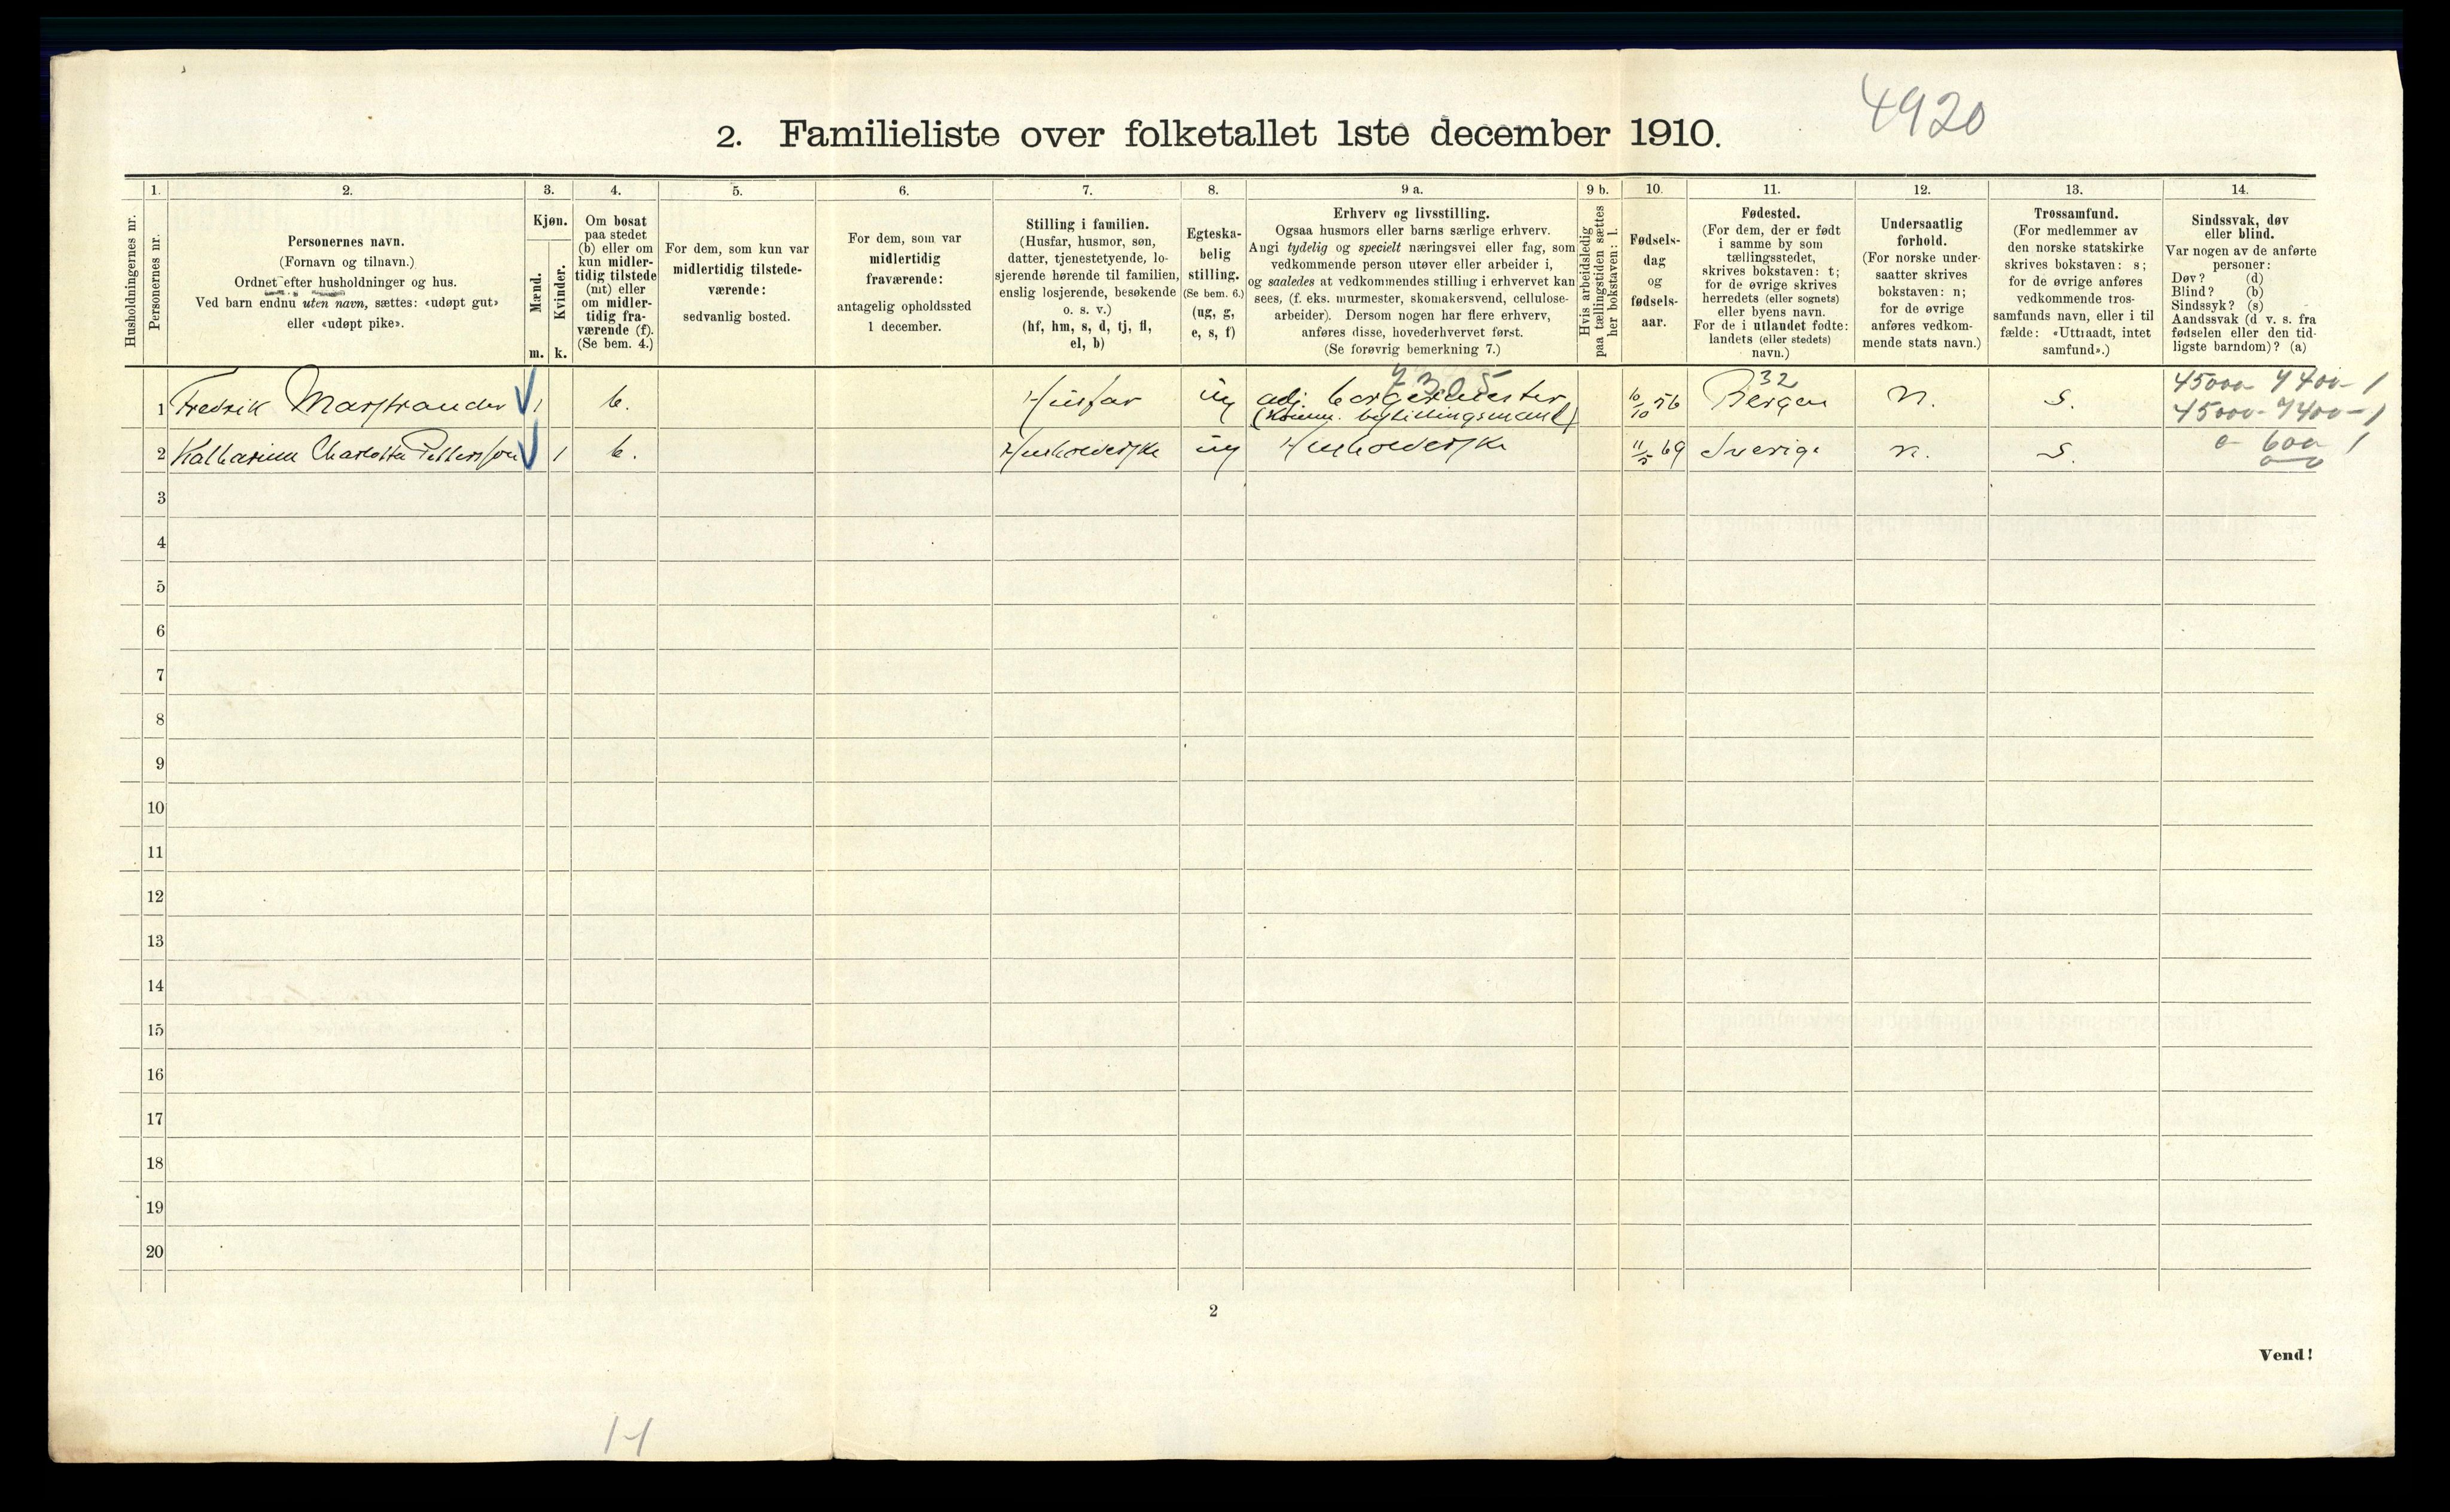 4920
2. Familieliste over folketallet 1ste december 1910.
Husholdningernes nr.
1.
Personernes nr.
2.
Personernes navn.
(Fornavn og tilnavn.)
Ordnet efter husholdninger og hus.
Ved barn endnu uten navn, sættes: «udøpt gut»
eller «udøpt pike».
3.
Kjøn.
Mænd.
Kvinder.
m. k.
4.
Om bosat
paa stedet
(b) eller om
kun midler-
tidig tilstede
(mt) eller
om midler-
tidig fra-
værende (f).
(Se bem. 4.)
5.
For dem, som kun var
midlertidig tilstede-
værende:
sedvanlig bosted.
6.
For dem, som var
midlertidig
fraværende:
antagelig opholdssted
1 december.
7.
Stilling i familien.
(Husfar, husmor, søn,
datter, tjenestetyende, lo-
sjerende hørende til familien,
enslig losjerende, besøkende
o. s. v.)
(hf, hm, s, d, tj, fl,
el, b)
8.
Egteska-
belig
stilling.
(Se bem. 6.)
(ug, g,
e, s, f)
9 a.
Erhverv og livsstilling.
Ogsaa husmors eller barns særlige erhverv.
Angi tydelig og specielt næringsvei eller fag, som
vedkommende person utøver eller arbeider i,
og saaledes at vedkommendes stilling i erhvervet kan
sees, (f. eks. murmester, skomakersvend, cellulose-
arbeider). Dersom nogen har flere erhverv,
anføres disse, hovederhvervet først.
(Se forøvrig bemerkning 7.)
9 b.
Hvis arbeidsledig
paa tællingstiden sættes
her bokstaven: l.
10.
Fødsels-
dag
og
fødsels-
aar.
11.
Fødested.
(For dem, der er født
i samme by som
tællingsstedet,
skrives bokstaven: t;
for de øvrige skrives
herredets (eller sognets)
eller byens navn.
For de i utlandet fødte:
landets (eller stedets)
navn.)
12.
Undersaatlig
forhold.
(For norske under-
saatter skrives
bokstaven: n;
for de øvrige
anføres vedkom-
mende stats navn.)
13.
Trossamfund.
(For medlemmer av
den norske statskirke
skrives bokstaven: s;
for de øvrige anføres
vedkommende tros-
samfunds navn, eller i til
fælde: «Uttraadt, intet
samfund».)
14.
Sindssvak, døv
eller blind.
Var nogen av de anførte
personer:
Døv? (d)
Blind? (b)
Sindssyk? (s)
Aandssvak (d v. s. fra
fødselen eller den tid-
ligste barndom)? (a)
32
45000 7400 - 1
1 Fredrik Marstrander 1 b. Husfar ug adj. borgermester 10/10 56 Bergen n. s. 45000 - 7400 - 1
2 Katharina Charlotta Pettersson 1 b. Husholderske ug Husholderske 11/5 69 Sverige n. s. 0 - 600 1
3
4
5
6
7
8
9
10
11
12
13
14
15
16
17
18
19
20
2
Vend!
14